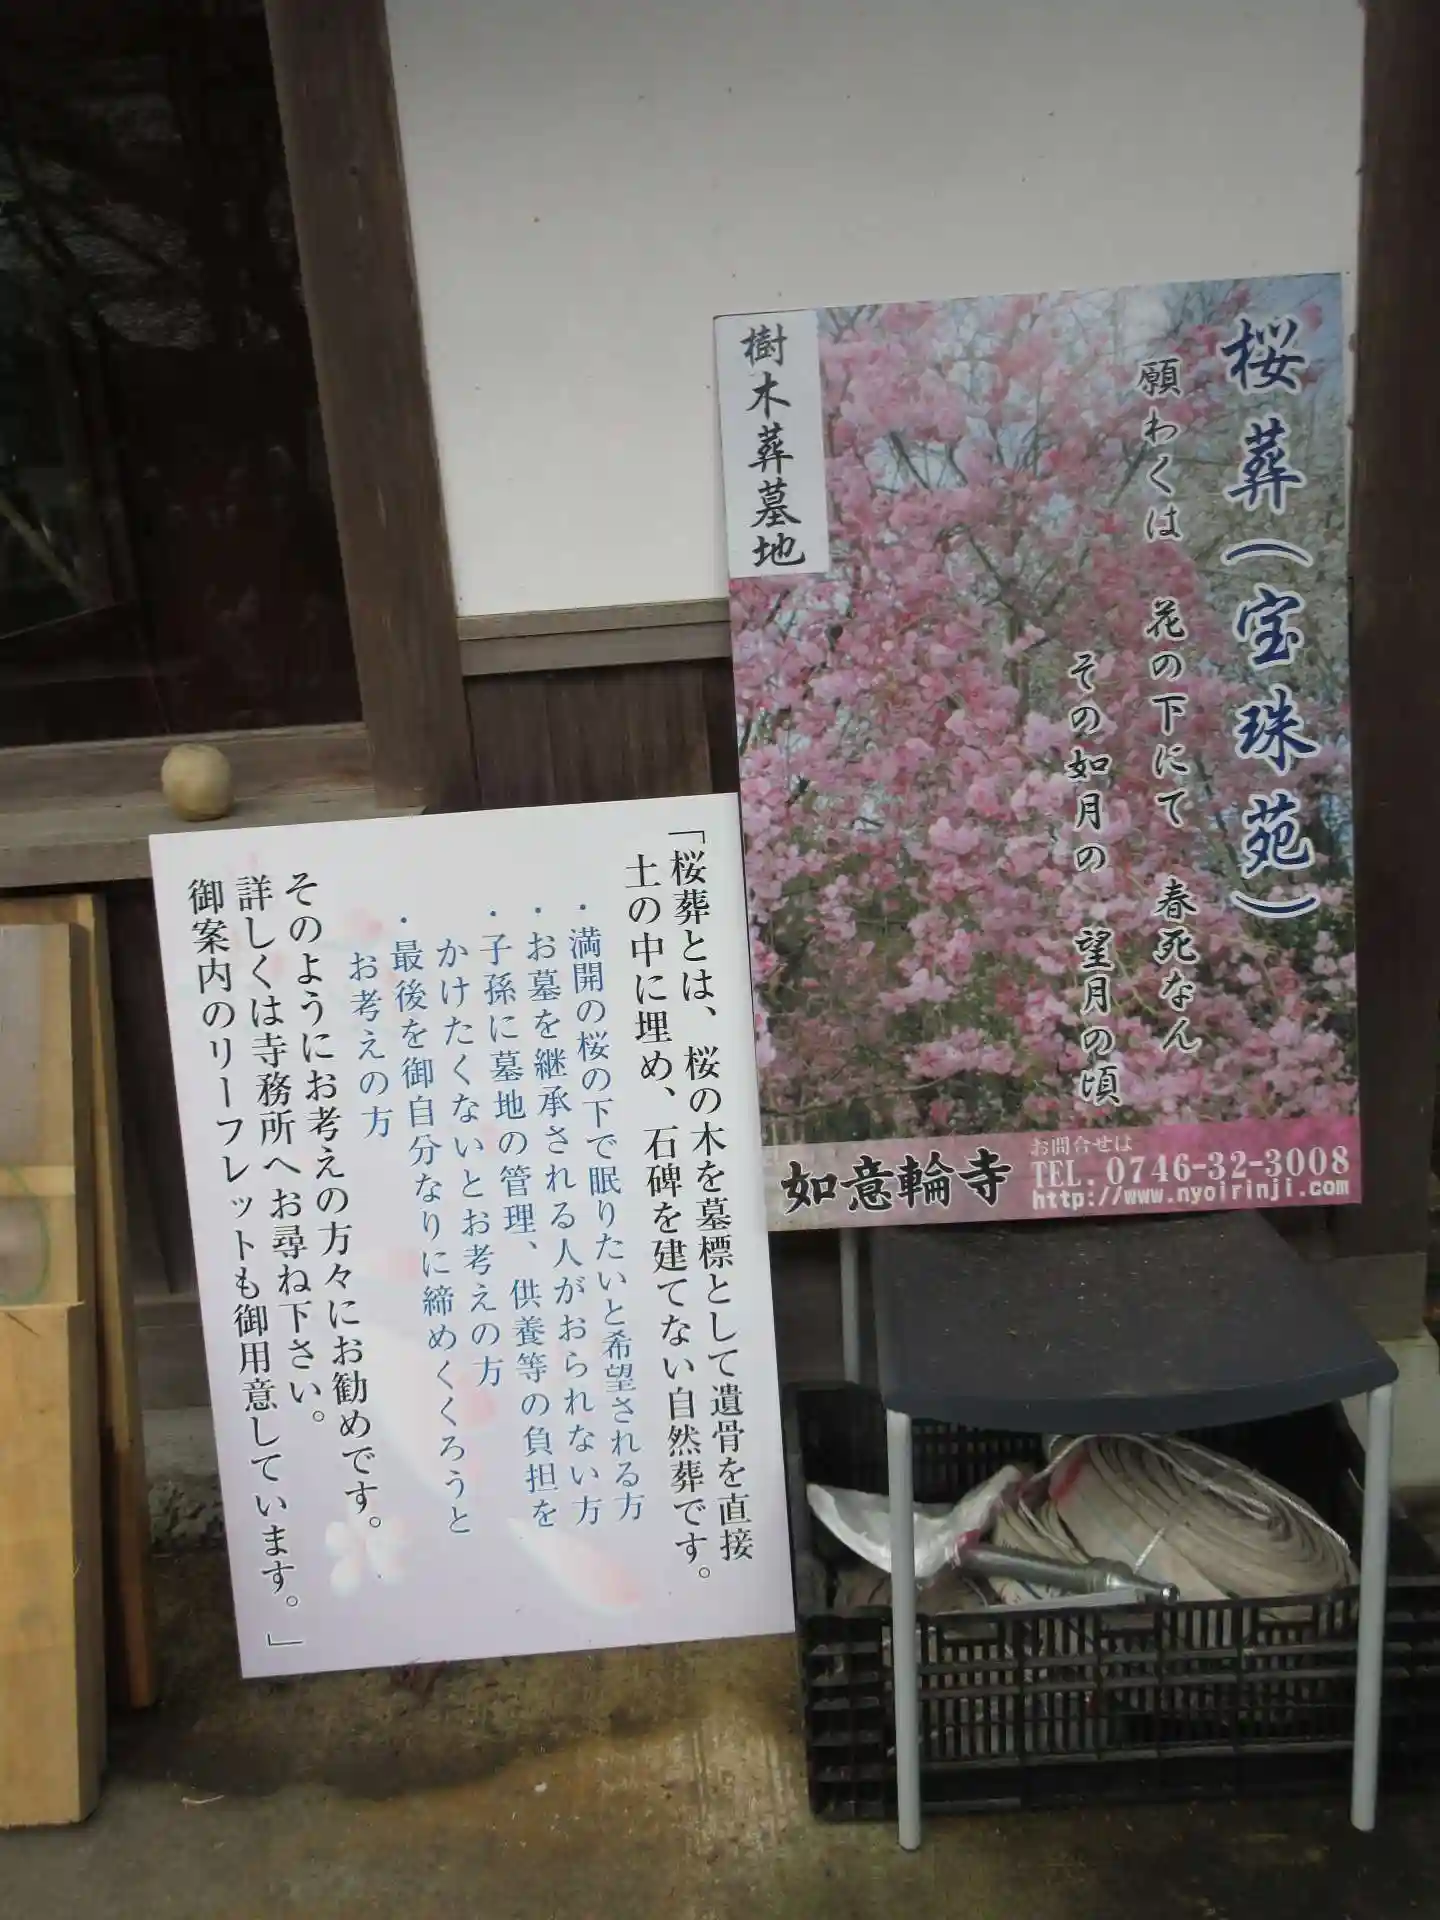 桜葬(宝珠苑)
願わくは 花の下にて 春死なん
その如月の 望月の頃
樹木葬墓地
如意輪寺
お問合せは
TEL.0746-32-3008
http://www.nyoirinji.com
「桜葬とは、桜の木を墓標として遺骨を直接
土の中に埋め、石碑を建てない自然葬です。
・満開の桜の下で眠りたいと希望される方
・お墓を継承される人がおられない方
・子孫に墓地の管理、供養等の負担を
かけたくないとお考えの方
・最後を御自分なりに締めくくろうと
お考えの方
そのようにお考えの方々にお勧めです。
詳しくは寺務所へお尋ね下さい。
御案内のリーフレットも御用意しています。」